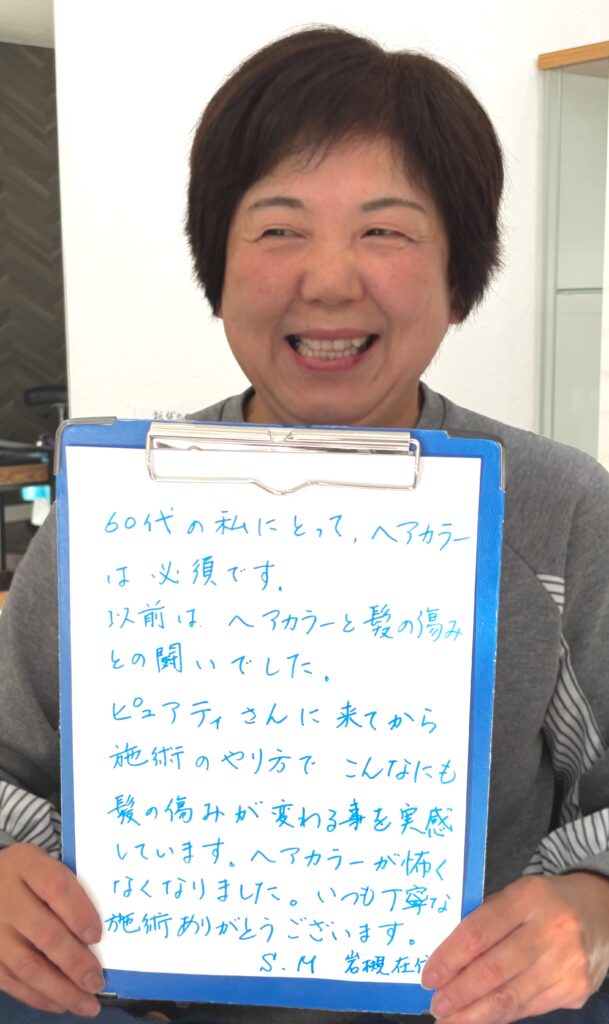 60代の私にとって,ヘアカラー
は必須です.
以前は ヘアカラーと髪の傷み
との闘いでした.
ピュアティさんに来てから
施術のやり方で こんなにも
髪の傷みが変わる事を実感
しています。ヘアカラーが怖く
なくなりました。いつも丁寧な
施術ありがとうございます。
S.M 岩槻在住